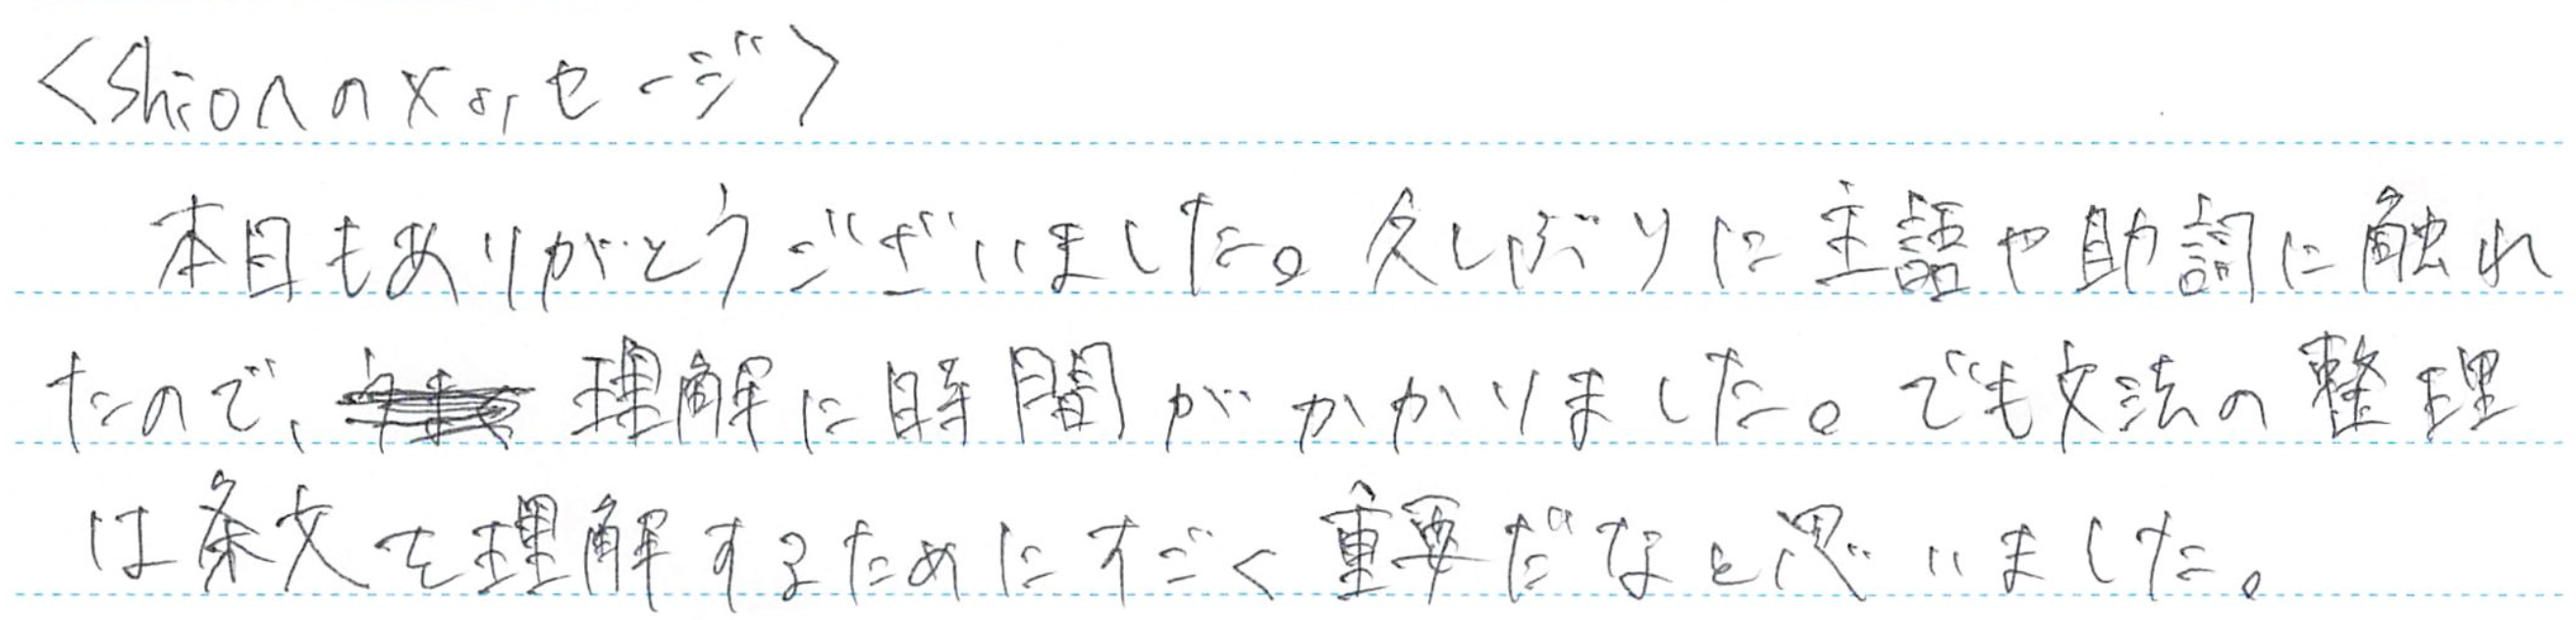 <Shioへのメッセージ>
本日もありがとうございました。久しぶりに主語や助詞に触れ
たので、理解に時間がかかりました。でも文法の整理
は条文を理解するためにすごく重要だなと思いました。